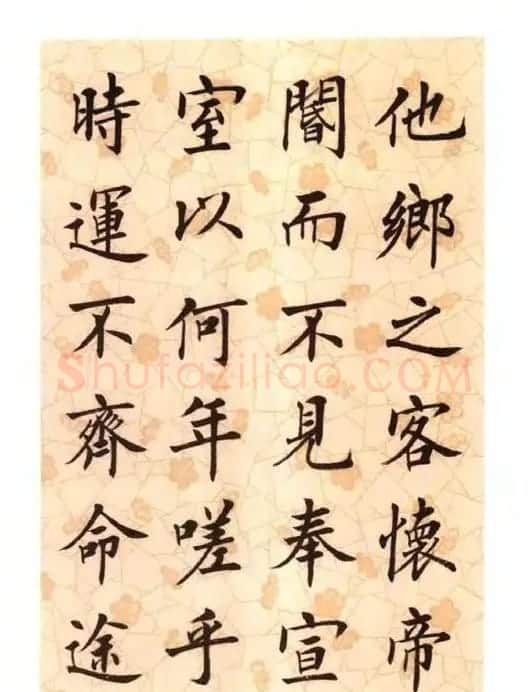 他鄉之客懷帝
閽而不見奉宣
室以何年嗟乎
時運不齊命途
Shufaziliao.COM